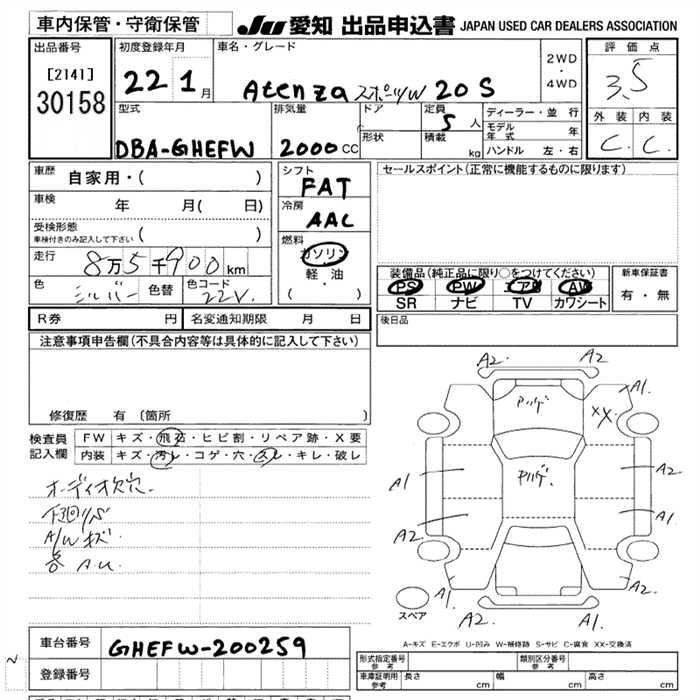 車内保管・守衛保管
JU 愛知 出品申込書 JAPAN USED CAR DEALERS ASSOCIATION
出品番号
[2141]
30158
初度登録年月
22 1月
車名・グレード
Atenza スポーツW 20S
2WD
・
4WD
評価点
3.5
外装 内装
C. C.
型式
DBA-GHEFW
排気量
2000 CC
ドア
形状
定員
5人
積載
kg
ディーラー・並行
モデル年式 年
ハンドル 左・右
車歴 自家用・( )
車検 年 月( 日)
受検形態
車検付きのみ記入して下さい ( )
走行 8万5千900km
色 シルバー 色替 色コード 22V
シフト
FAT
冷房
AAC
燃料
ガソリン
軽・油
( ・ )
セールスポイント(正常に機能するものに限ります)
装備品(純正品に限り○をつけてください)
PS PW エアB AW
SR ナビ TV カワシート
新車保証書
有・無
R券 円 名変通知期限 月 日
後日品
注意事項申告欄(不具合内容等は具体的に記入して下さい)
修復歴 有(箇所
検査員記入欄
FW キズ・飛石・ヒビ割・リペア跡・X要
内装 キズ・汚レ・コゲ・穴・スレ・キレ・破レ
オーディオ欠穴
下回りS
A/Wキズ
各A.U.
A2. A2
A1.
XX
A1
A2
A2.
A1
A1 A2.
A2. A1.
スペア
A-キズ E-エクボ U-凹み W-補修跡 S-サビ C-腐食 XX-交換済
車台番号 GHEFW-200259
登録番号
形式指定番号
参考
類別区分番号
参考
車庫証明用
参考
長さ cm 幅 cm 高さ cm